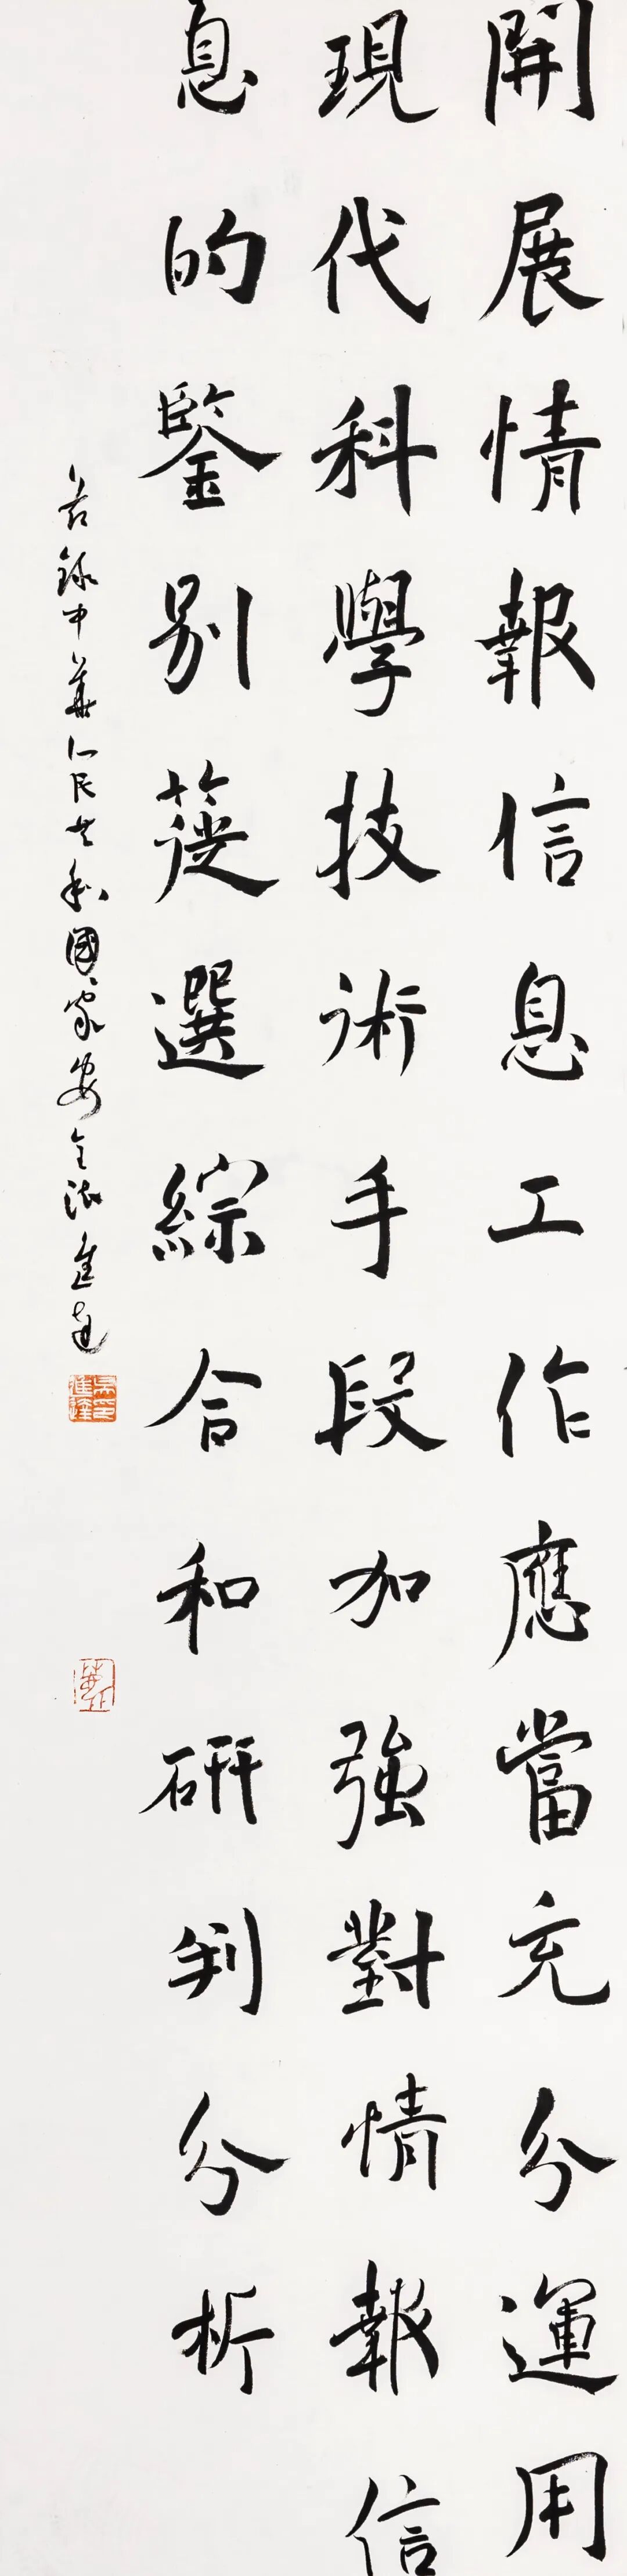 開展情報信息工作應當充分運用
現代科學技術手段加強對情報信
息的鑒別篩選綜合和研判分析
右錄中華人民共和國國家安全法 進達
吳印進達